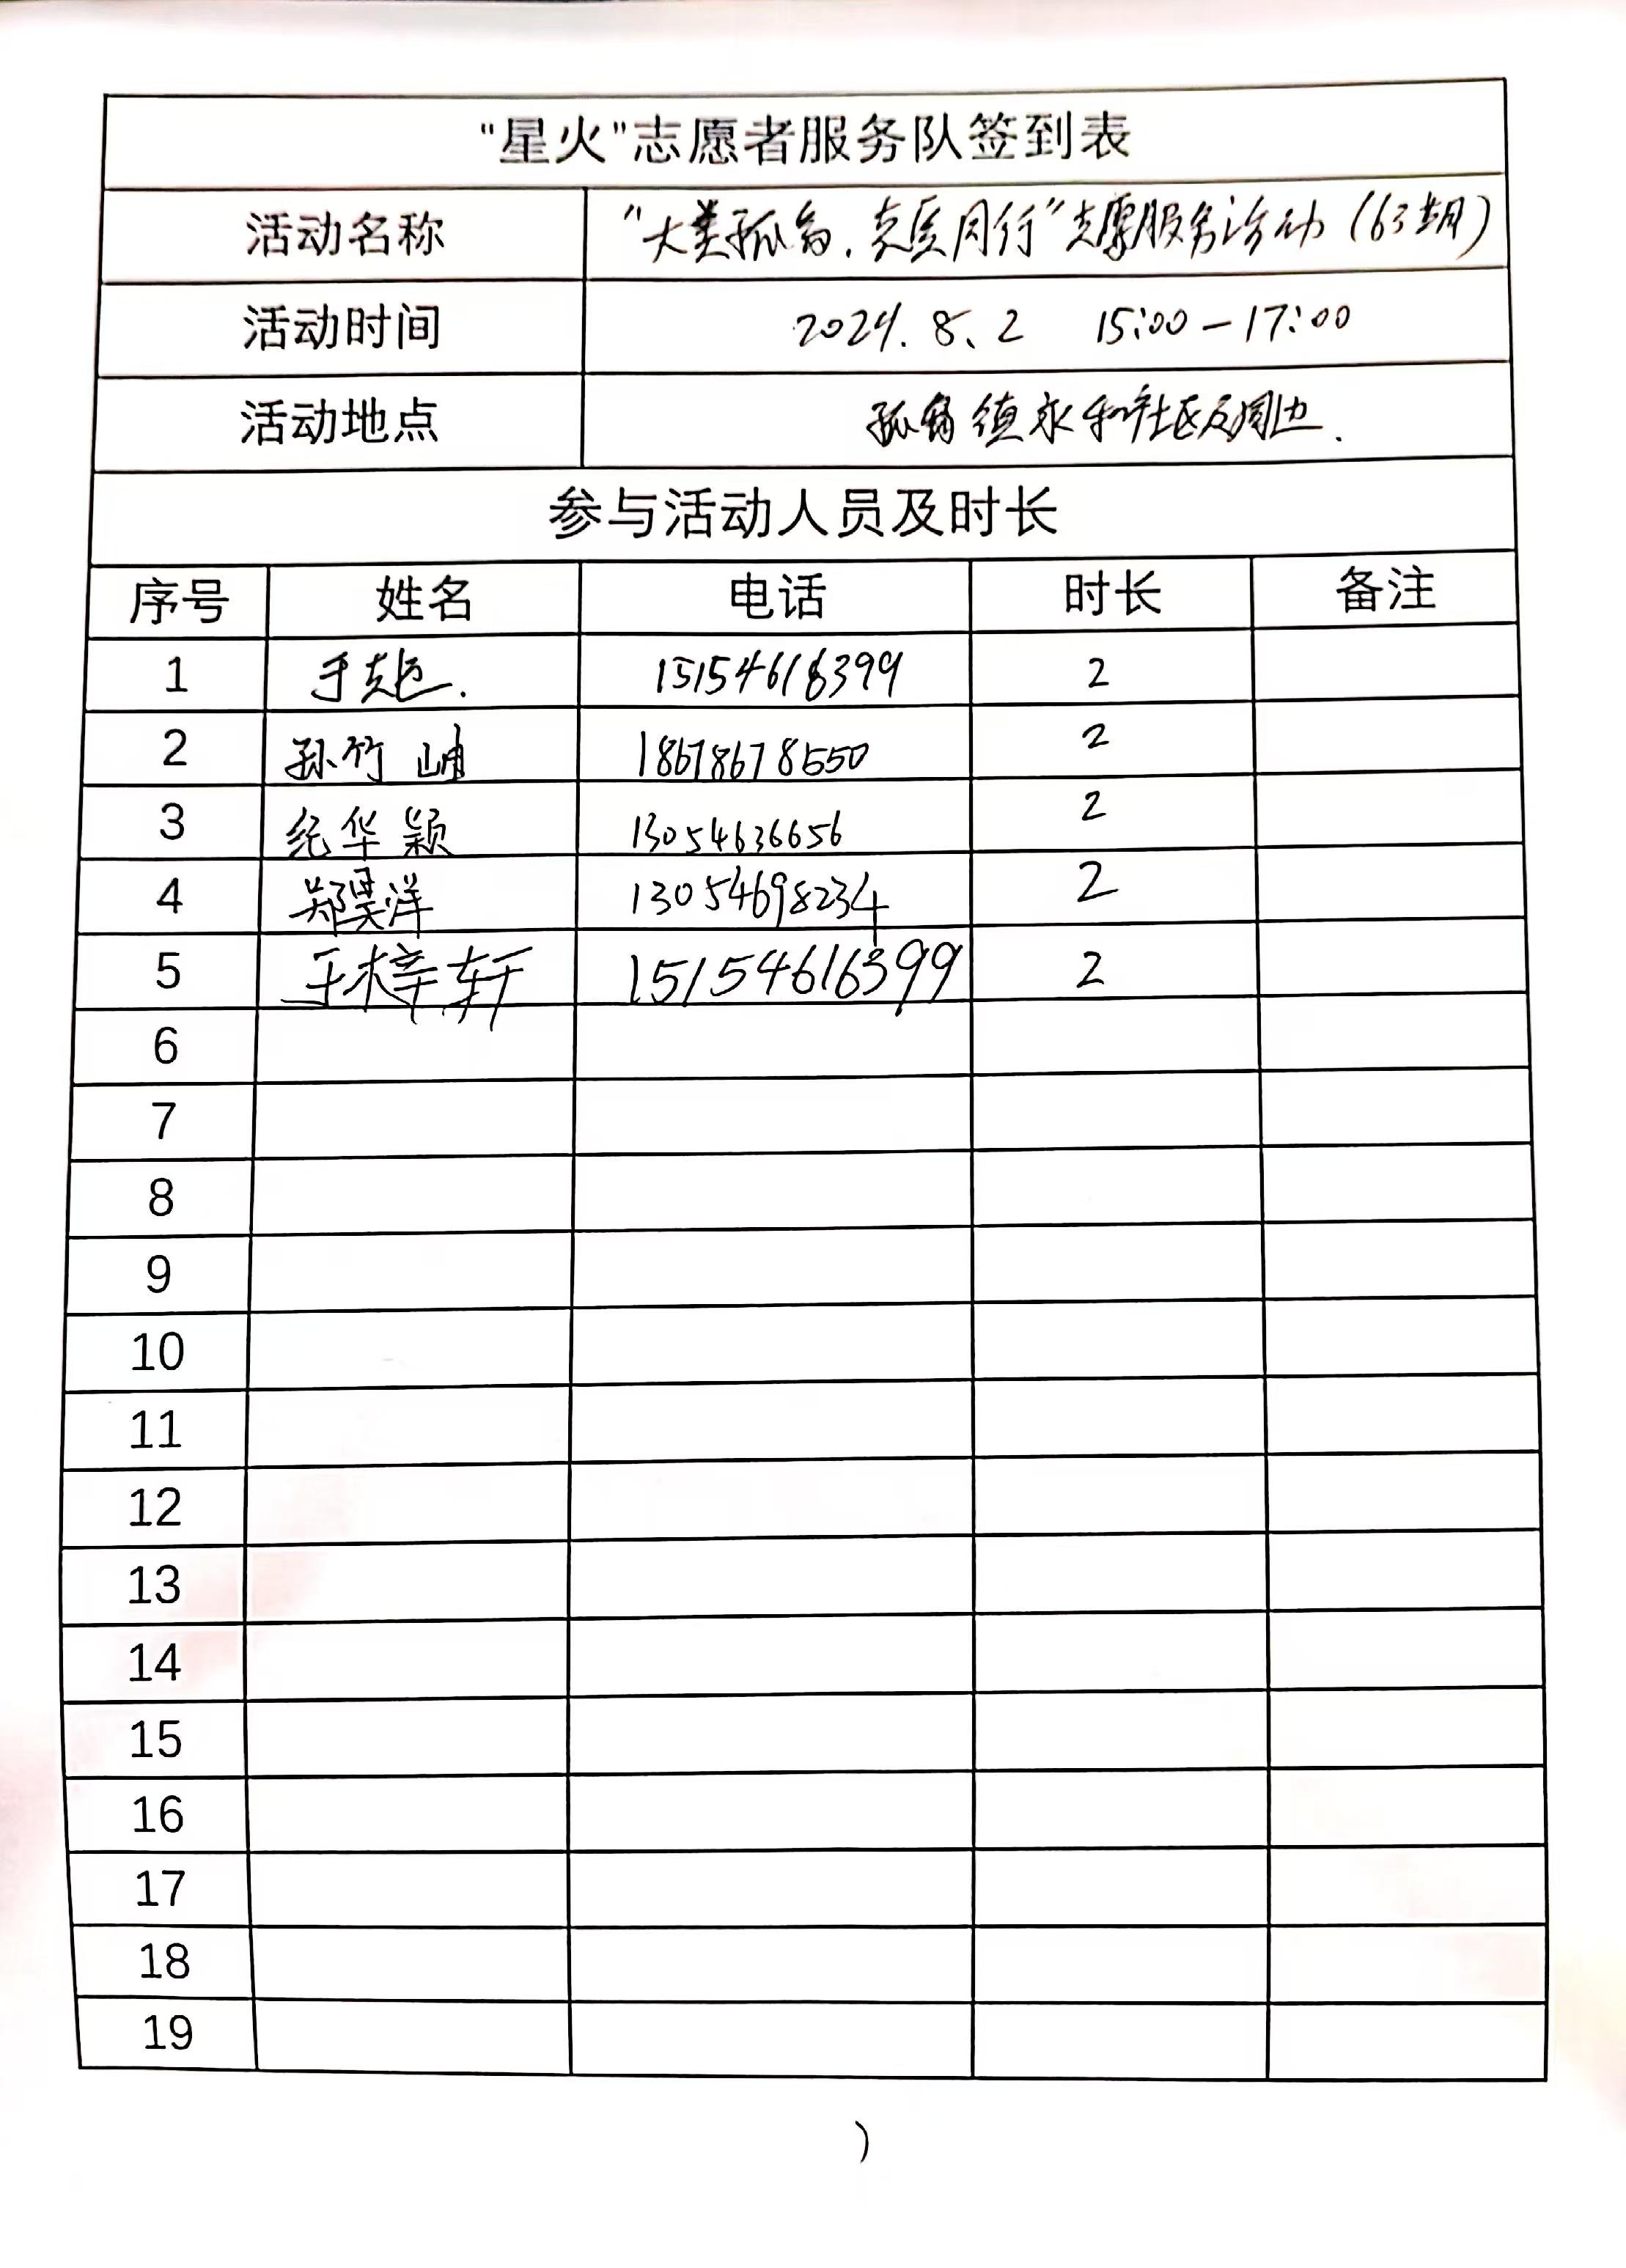 "星火"志愿者服务队签到表
活动名称 "大美孤岛,克医同行"志愿服务活动(63期)
活动时间 2024.8.2 15:00-17:00
活动地点 孤岛镇永和社区及周边.
参与活动人员及时长
序号 姓名 电话 时长 备注
1 15154616399 2
2 孙竹岫 18678678550 2
3 纪华颖 13054636656 2
4 郑昊洋 13054698234 2
5 王梓轩 15154616399 2
6
7
8
9
10
11
12
13
14
15
16
17
18
19